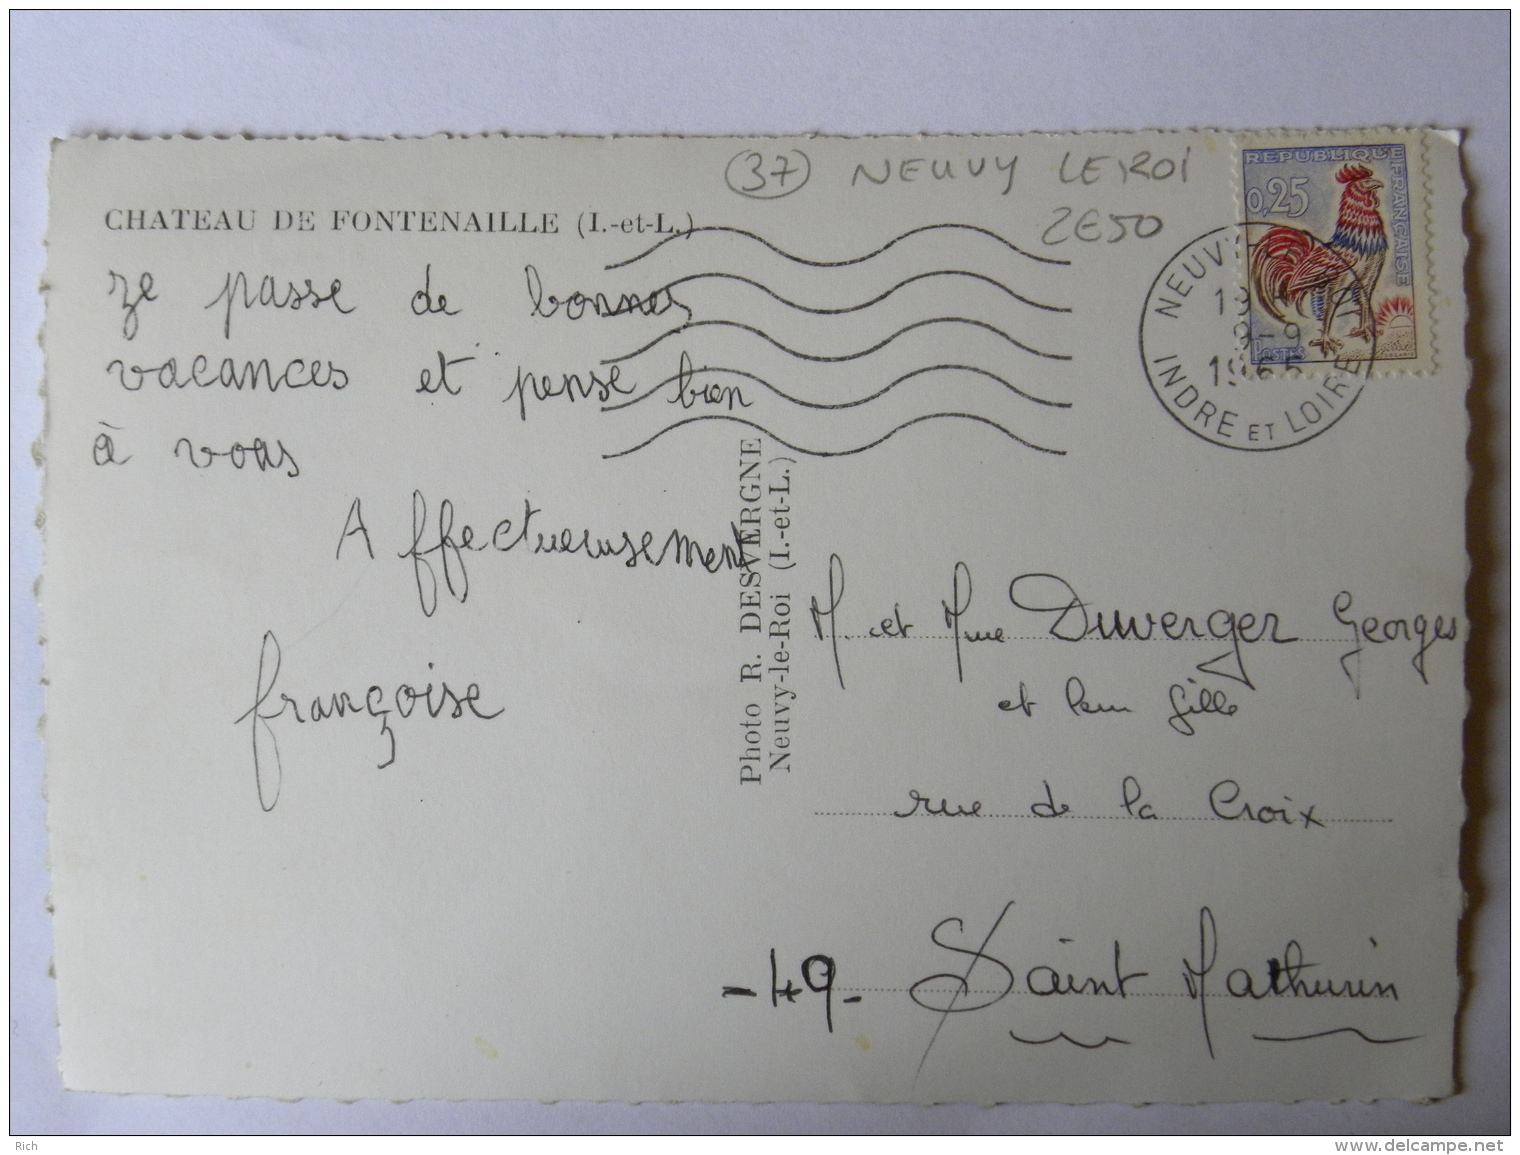 (37) NEUVY LE ROI
2E50
REPUBLIQUE FRANCAISE
0,25
POSTES
NEUVY
9-9
1965
INDRE ET LOIRE
CHATEAU DE FONTENAILLE (I.-et-L.)
ze passe de bonnes
vacances et pense bien
à vous
Affectueusement
françoise
Photo R. DESVERGNE
Neuvy-le-Roi (I.-et-L.)
M. et Mme Duverger Georges
et leur fille
rue de la Croix
-49- Saint Mathurin
Rich
www.delcampe.net